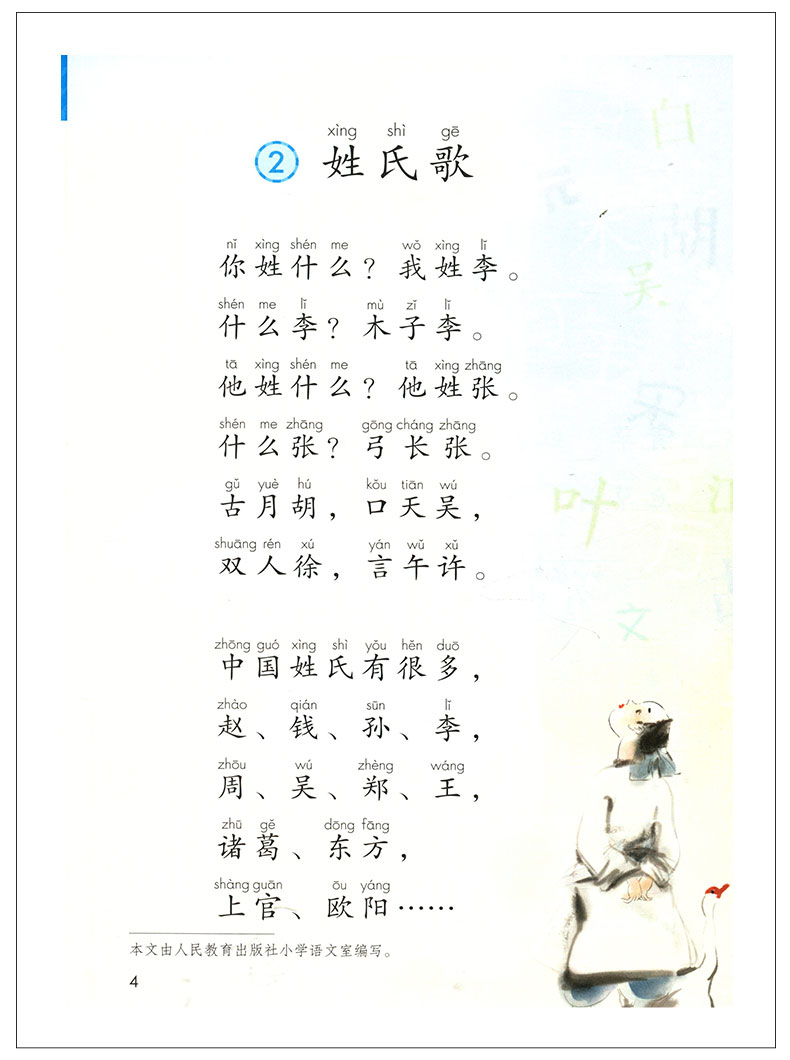 xìng shì gē
2 姓氏歌
nǐ xìng shén me wǒ xìng lǐ
你姓什么？我姓李。
shén me lǐ mù zǐ lǐ
什么李？木子李。
tā xìng shén me tā xìng zhāng
他姓什么？他姓张。
shén me zhāng gōng cháng zhāng
什么张？弓长张。
gǔ yuè hú kǒu tiān wú
古月胡，口天吴，
shuāng rén xú yán wǔ xǔ
双人徐，言午许。
zhōng guó xìng shì yǒu hěn duō
中国姓氏有很多，
zhào qián sūn lǐ
赵、钱、孙、李，
zhōu wú zhèng wáng
周、吴、郑、王，
zhū gě dōng fāng
诸葛、东方，
shàng guān ōu yáng
上官、欧阳……
本文由人民教育出版社小学语文室编写。
4
白
吴
叶
文